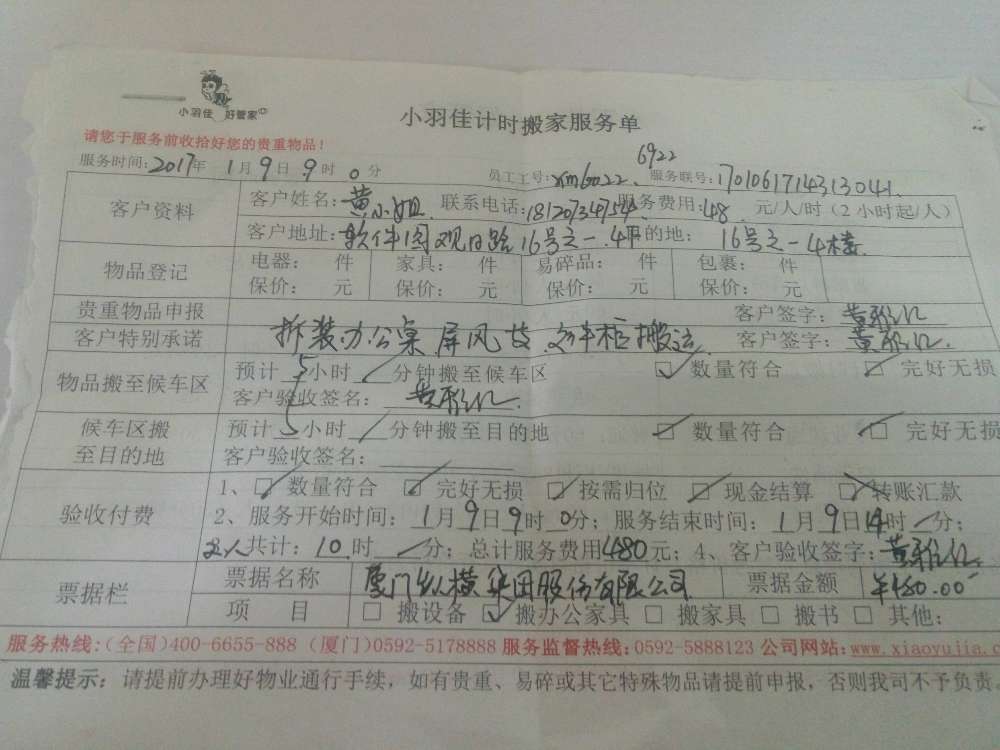 小羽佳 好管家©
小羽佳计时搬家服务单
请您于服务前收拾好您的贵重物品！
6922
服务时间：2017年 1月9日 9时 0分 员工工号：xm6022 服务联号：1701061714313041
客户资料 客户姓名：黄小姐 联系电话：18120734754 服务费用：48 元/人/时（2小时起/人）
客户地址：软件园观日路16号之一 4F 目的地：16号之一4楼
物品登记 电器： 件 家具： 件 易碎品： 件 包裹： 件
保价： 元 保价： 元 保价： 元 保价： 元
贵重物品申报 客户签字：
客户特别承诺 拆装办公桌屏风及文件柜搬运 客户签字：
物品搬至候车区 预计 5小时 / 分钟搬至候车区 ☑ 数量符合 ☑ 完好无损
客户验收签名：
候车区搬至目的地 预计 5小时 / 分钟搬至目的地 ☑ 数量符合 ☑ 完好无损
客户验收签名：
验收付费 1、☑ 数量符合 ☑ 完好无损 ☑ 按需归位 ☑ 现金结算 ☑ 转账汇款
2、服务开始时间：1月9日9时 0分；服务结束时间：1月9日14时 / 分；
2人共计：10时 / 分；总计服务费用480元；4、客户验收签字：
票据栏 票据名称 厦门纵横集团股份有限公司 票据金额 ￥480.00
项 目 □ 搬设备 ☑ 搬办公家具 □ 搬家具 □ 搬书 □ 其他：
服务热线：(全国)400-6655-888 (厦门)0592-5178888 服务监督热线：0592-5888123 公司网站：www.xiaoyujia.c
温馨提示：请提前办理好物业通行手续，如有贵重、易碎或其它特殊物品请提前申报，否则我司不予负责。